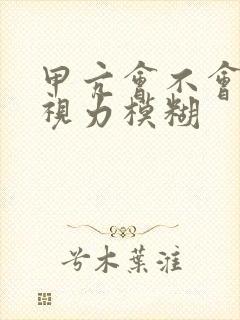 甲亢會不會
視力模糊
兮木葉淮